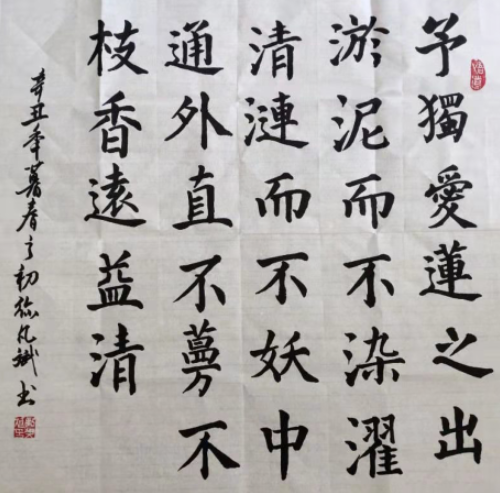 予獨愛蓮之出
淤泥而不染濯
清漣而不妖中
通外直不蔓不
枝香遠益清
辛丑年暮春之初凡斌书